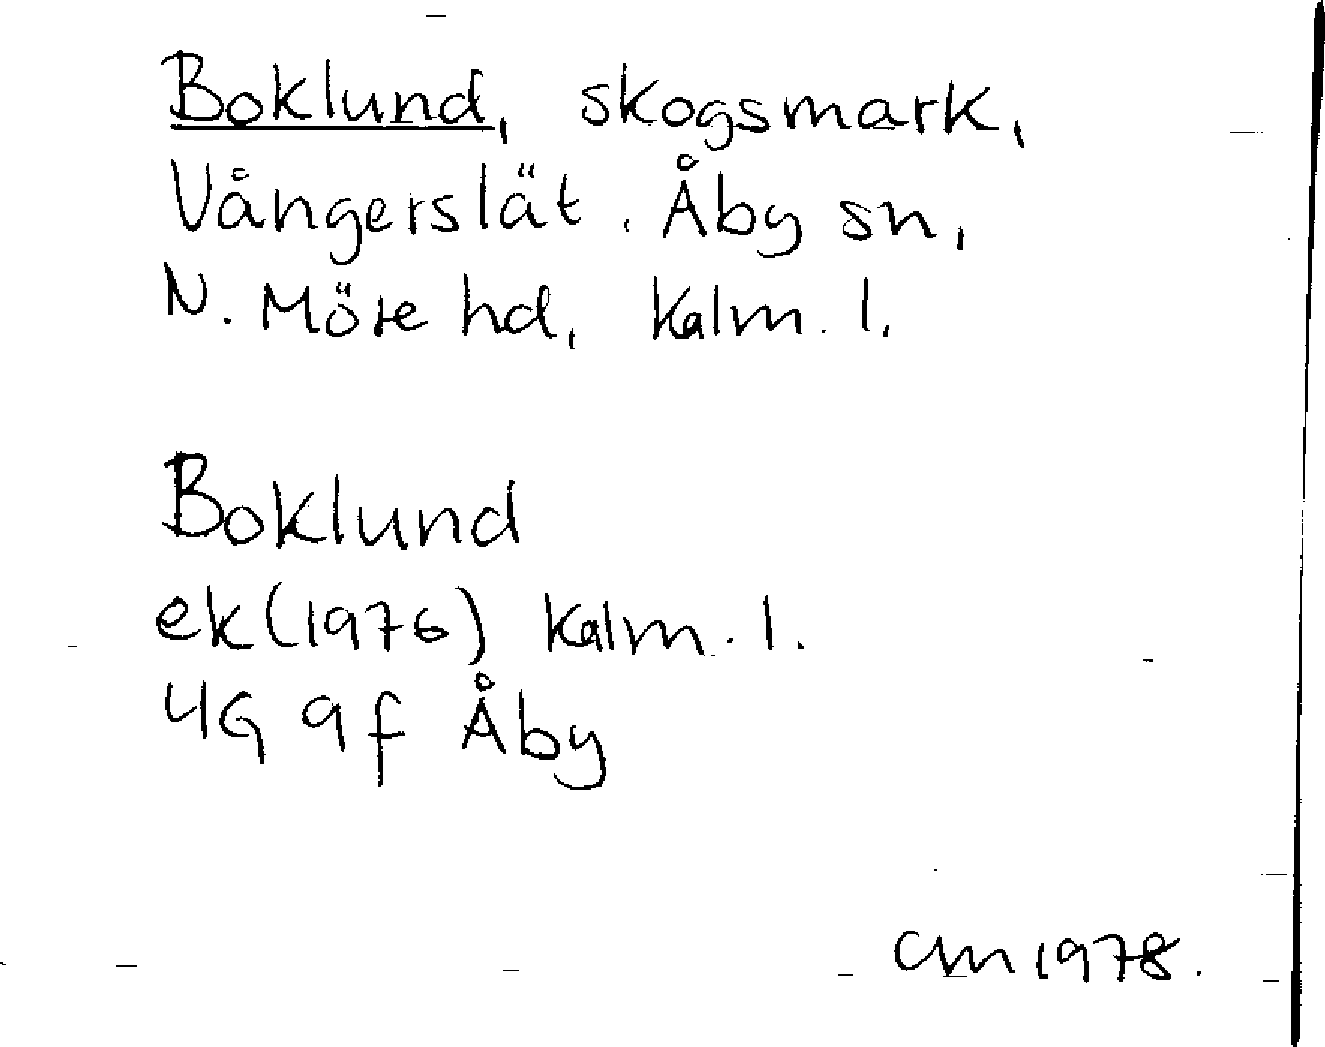 Boklund, skogsmark,
Vångerslät. Åby sn,
N. Möre hd, Kalm. l.
Boklund
ek (1976) Kalm. l.
4G 9f Åby
CM 1978.